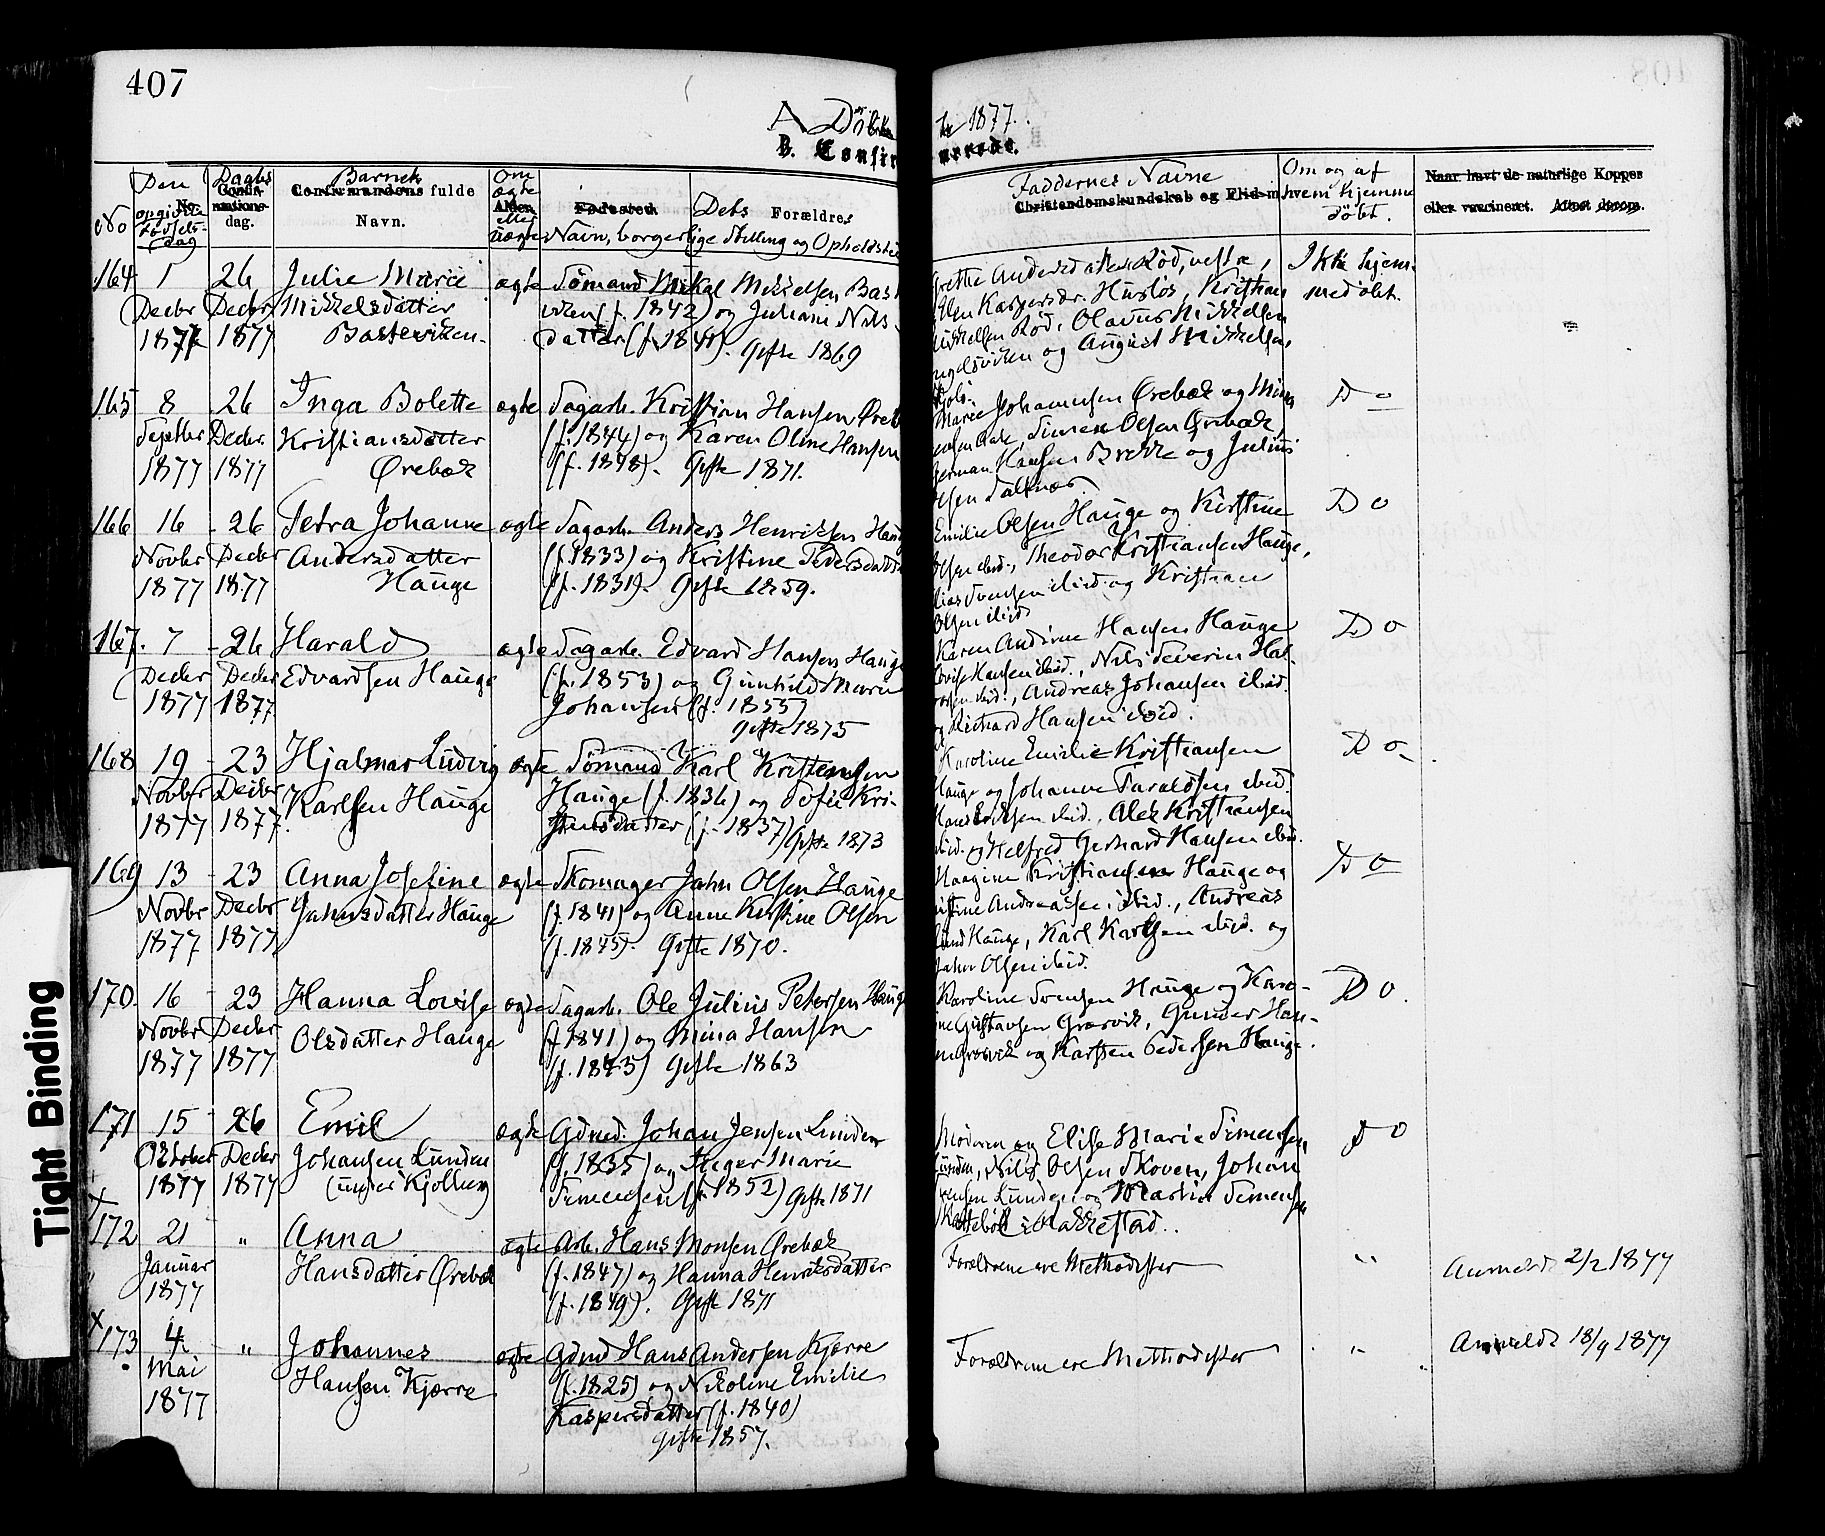 407
A Døbte 1877.
B. Confirmerede.
No
Den opgivne Fødselsdag
Daabsdag.
Barnets fulde Navn.
Om ægte eller uægte
Dets Forældres Navn, borgerlige Stilling og Opholdsted
Faddernes Navne
Christendomskundskab og Flid
Om og af hvem hjemmedøbt.
Naar havt de naturlige Kopper
eller vaccineret. Attest derom.
164 1 26 Julie Marie ægte Sømand Mikal Mikkelsen Bast
Decbr Decbr Mikkelsdatter viken (f. 1842) og Juliane Nils-
1877 1877 Basteviken. datter (f. 1841). Gifte 1869
Grethe Andersdatter Rød, vestre, Ikke hjem-
Ellen Kaspersdr. Husløs, Kristian medøbt.
Mikkelsen Rød, Olavus Mikkelsen
og August Mikkelsen,
165 8 26 Inga Bolette ægte Dagarb. Kristian Hansen Øreb
Septbr Decbr. Kristiansdatter (f. 1844) og Karen Oline Hansen
1877 1877 Ørebæk (f. 1848). Gifte 1871.
Marie Johannsen Ørebæk og Mina Do
Simen Olsen Ørebæk,
Herman Hansen Brekke og Julius
Olsen Saltnæs.
166 16 26 Petra Johanne ægte Dagarb. Anders Henriksen Haug
Novbr Decbr Andersdatter (f. 1833) og Kristine Pedersdatter
1877 1877 Hauge (f. 1831). Gifte 1859.
Emilie Olsen Hauge og Kirstine Do
Olsen ibid., Theodor Kristiansen Hauge,
Svensen ibid. og Kristian
Olsen ibid
167. 7 26 Harald ægte Dagarb. Edvard Hansen Hauge
Decbr Decbr Edvardsen Hauge (f. 1853) og Gunhild Marie
1877 1877 Johansen (f. 1855)
Gifte 1875
Karen Andrine Hansen Hauge Do
Lovise Hansen ibid., Nils Severin Hal-
vorsen ibid., Andreas Johansen ibid.
og Richard Hansen ibid.
168 19 23 Hjalmar Ludvig ægte Sømand Karl Kristensen
Novbr Decbr Karlsen Hauge Hauge (f. 1836) og Sofie Kri-
1877 1877. stensdatter (f. 1837) Gifte 1873
Karoline Emilie Kristiansen Do
Hauge og Johanne Taraldsen ibid.
Hans Eriksen ibid., Alex Kristiansen
ibid. og Helfred Gerhard Hansen ibid.
169 13 23 Anna Josefine ægte Skomager Jahn Olsen Hauge
Novbr Decbr Jahnsdatter Hauge (f. 1841) og Anne Kirstine Olsen
1877 1877 (f. 1845). Gifte 1870.
Haagine Kristiansen Hauge og Do
Andreassen ibid., Andreas
Hauge, Karl Karlsen ibid. og
Jahn Olsen ibid.
170. 16 23 Hanna Lovise ægte Dagarb. Ole Julius Petersen Haug
Novbr Decbr Olsdatter Hauge (f. 1841) og Mina Hansen
1877 1877 (f. 1843) Gifte 1863
Karoline Svensen Hauge og Karo- Do.
ine Gustavsen Græsvik, Gunder Han-
Græsvik og Karsten Pedersen Hauge.
171 15 26 Emil ægte Gdmd. Johan Jensen Lunden
Oktober Decbr Johansen Lunden (f. 1835) og Inger Marie
1877 1877 (under Kjølberg) Simensen (f. 1852) Gifte 1871
Moderen og Elise Marie Simensen, Do
Lunden, Nils Olsen Skoven, Johan
Jensen Lunden og Martin Simensen
i Rakkestad.
172 21 " Anna ægte Arb. Hans Monsen Ørebæk
Januar Hansdatter Ørebæk (f. 1847) og Hanna Henriksdatter
1877 (f. 1849). Gifte 1871
Forældrene ere Methodister " Anmeldt 2/2 1877
173 4 " Johannes ægte Gdmd Hans Andersen Kjærre
Mai Hansen Kjærre (f. 1825) og Nikoline Emilie
1877 Kaspersdatter (f. 1840)
Gifte 1857.
Forældrene ere Methodister " Anmeldt 18/9 1877
Tight Binding